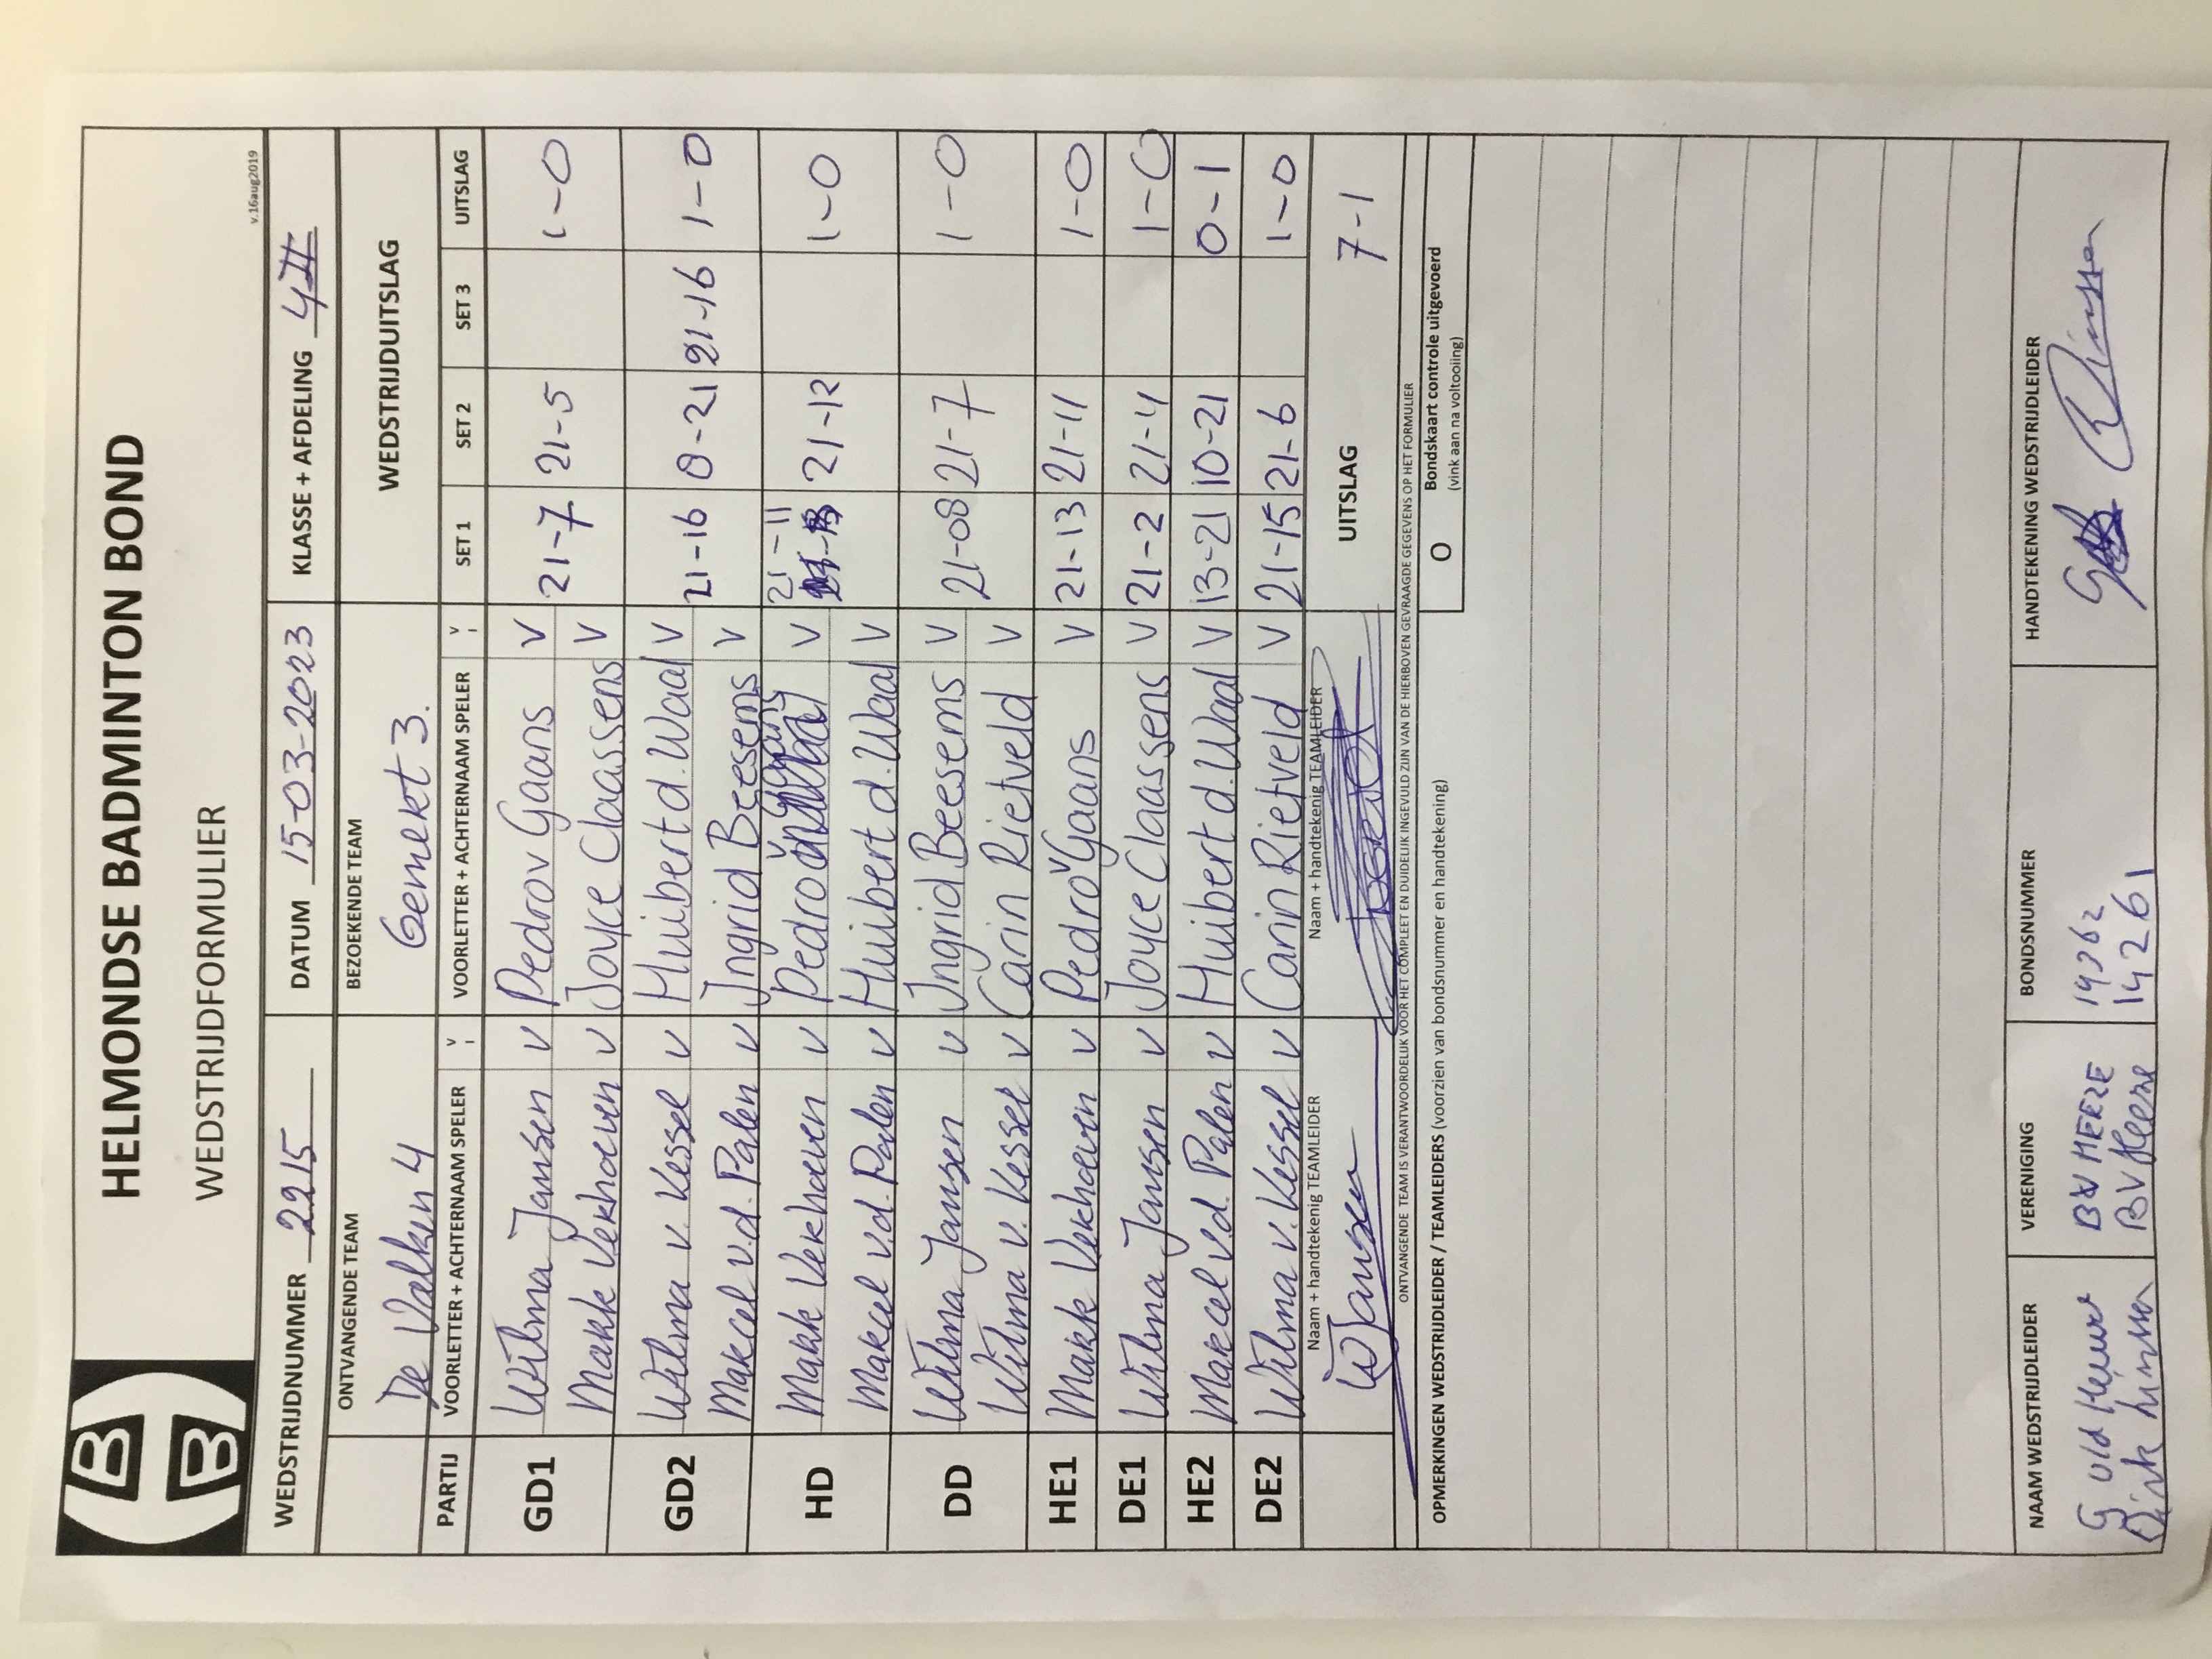 HELMONDSE BADMINTON BOND
WEDSTRIJDFORMULIER
v.16aug2019
WEDSTRIJDNUMMER 2215 DATUM 15-03-2023 KLASSE + AFDELING 4II
ONTVANGENDE TEAM BEZOEKENDE TEAM WEDSTRIJDUITSLAG
De Valken 4 Gemert 3.
PARTIJ VOORLETTER + ACHTERNAAM SPELER V VOORLETTER + ACHTERNAAM SPELER V SET 1 SET 2 SET 3 UITSLAG
GD1 Wilma Jansen v Pedro v Gaans v 21-7 21-5 1-0
Mark Verhoeven v Joyce Claassens v
GD2 Wilma v. Kessel v Huibert d. Waal v 21-16 8-21 21-16 1-0
Marcel v.d. Palen v Ingrid Beesems v
HD Mark Verhoeven v Pedro v Gaans v 21-11 21-12 1-0
Marcel v.d. Palen v Huibert d. Waal v
DD Wilma Jansen v Ingrid Beesems v 21-08 21-7 1-0
Wilma v. Kessel v Carin Rietveld v
HE1 Mark Verhoeven v Pedro v Gaans v 21-13 21-11 1-0
DE1 Wilma Jansen v Joyce Claassens v 21-2 21-4 1-0
HE2 Marcel v.d. Palen v Huibert d. Waal v 13-21 10-21 0-1
DE2 Wilma v. Kessel v Carin Rietveld v 21-15 21-6 1-0
Naam + handtekenig TEAMLEIDER Naam + handtekenig TEAMLEIDER UITSLAG 7-1
WJansen
ONTVANGENDE TEAM IS VERANTWOORDELIJK VOOR HET COMPLEET EN DUIDELIJK INGEVULD ZIJN VAN DE HIERBOVEN GEVRAAGDE GEGEVENS OP HET FORMULIER
OPMERKINGEN WEDSTRIJDLEIDER / TEAMLEIDERS (voorzien van bondsnummer en handtekening) O Bondskaart controle uitgevoerd
(vink aan na voltooiing)
NAAM WEDSTRIJDLEIDER VERENIGING BONDSNUMMER HANDTEKENING WEDSTRIJDLEIDER
G vld BV HEEZE
BV Heeze 14261